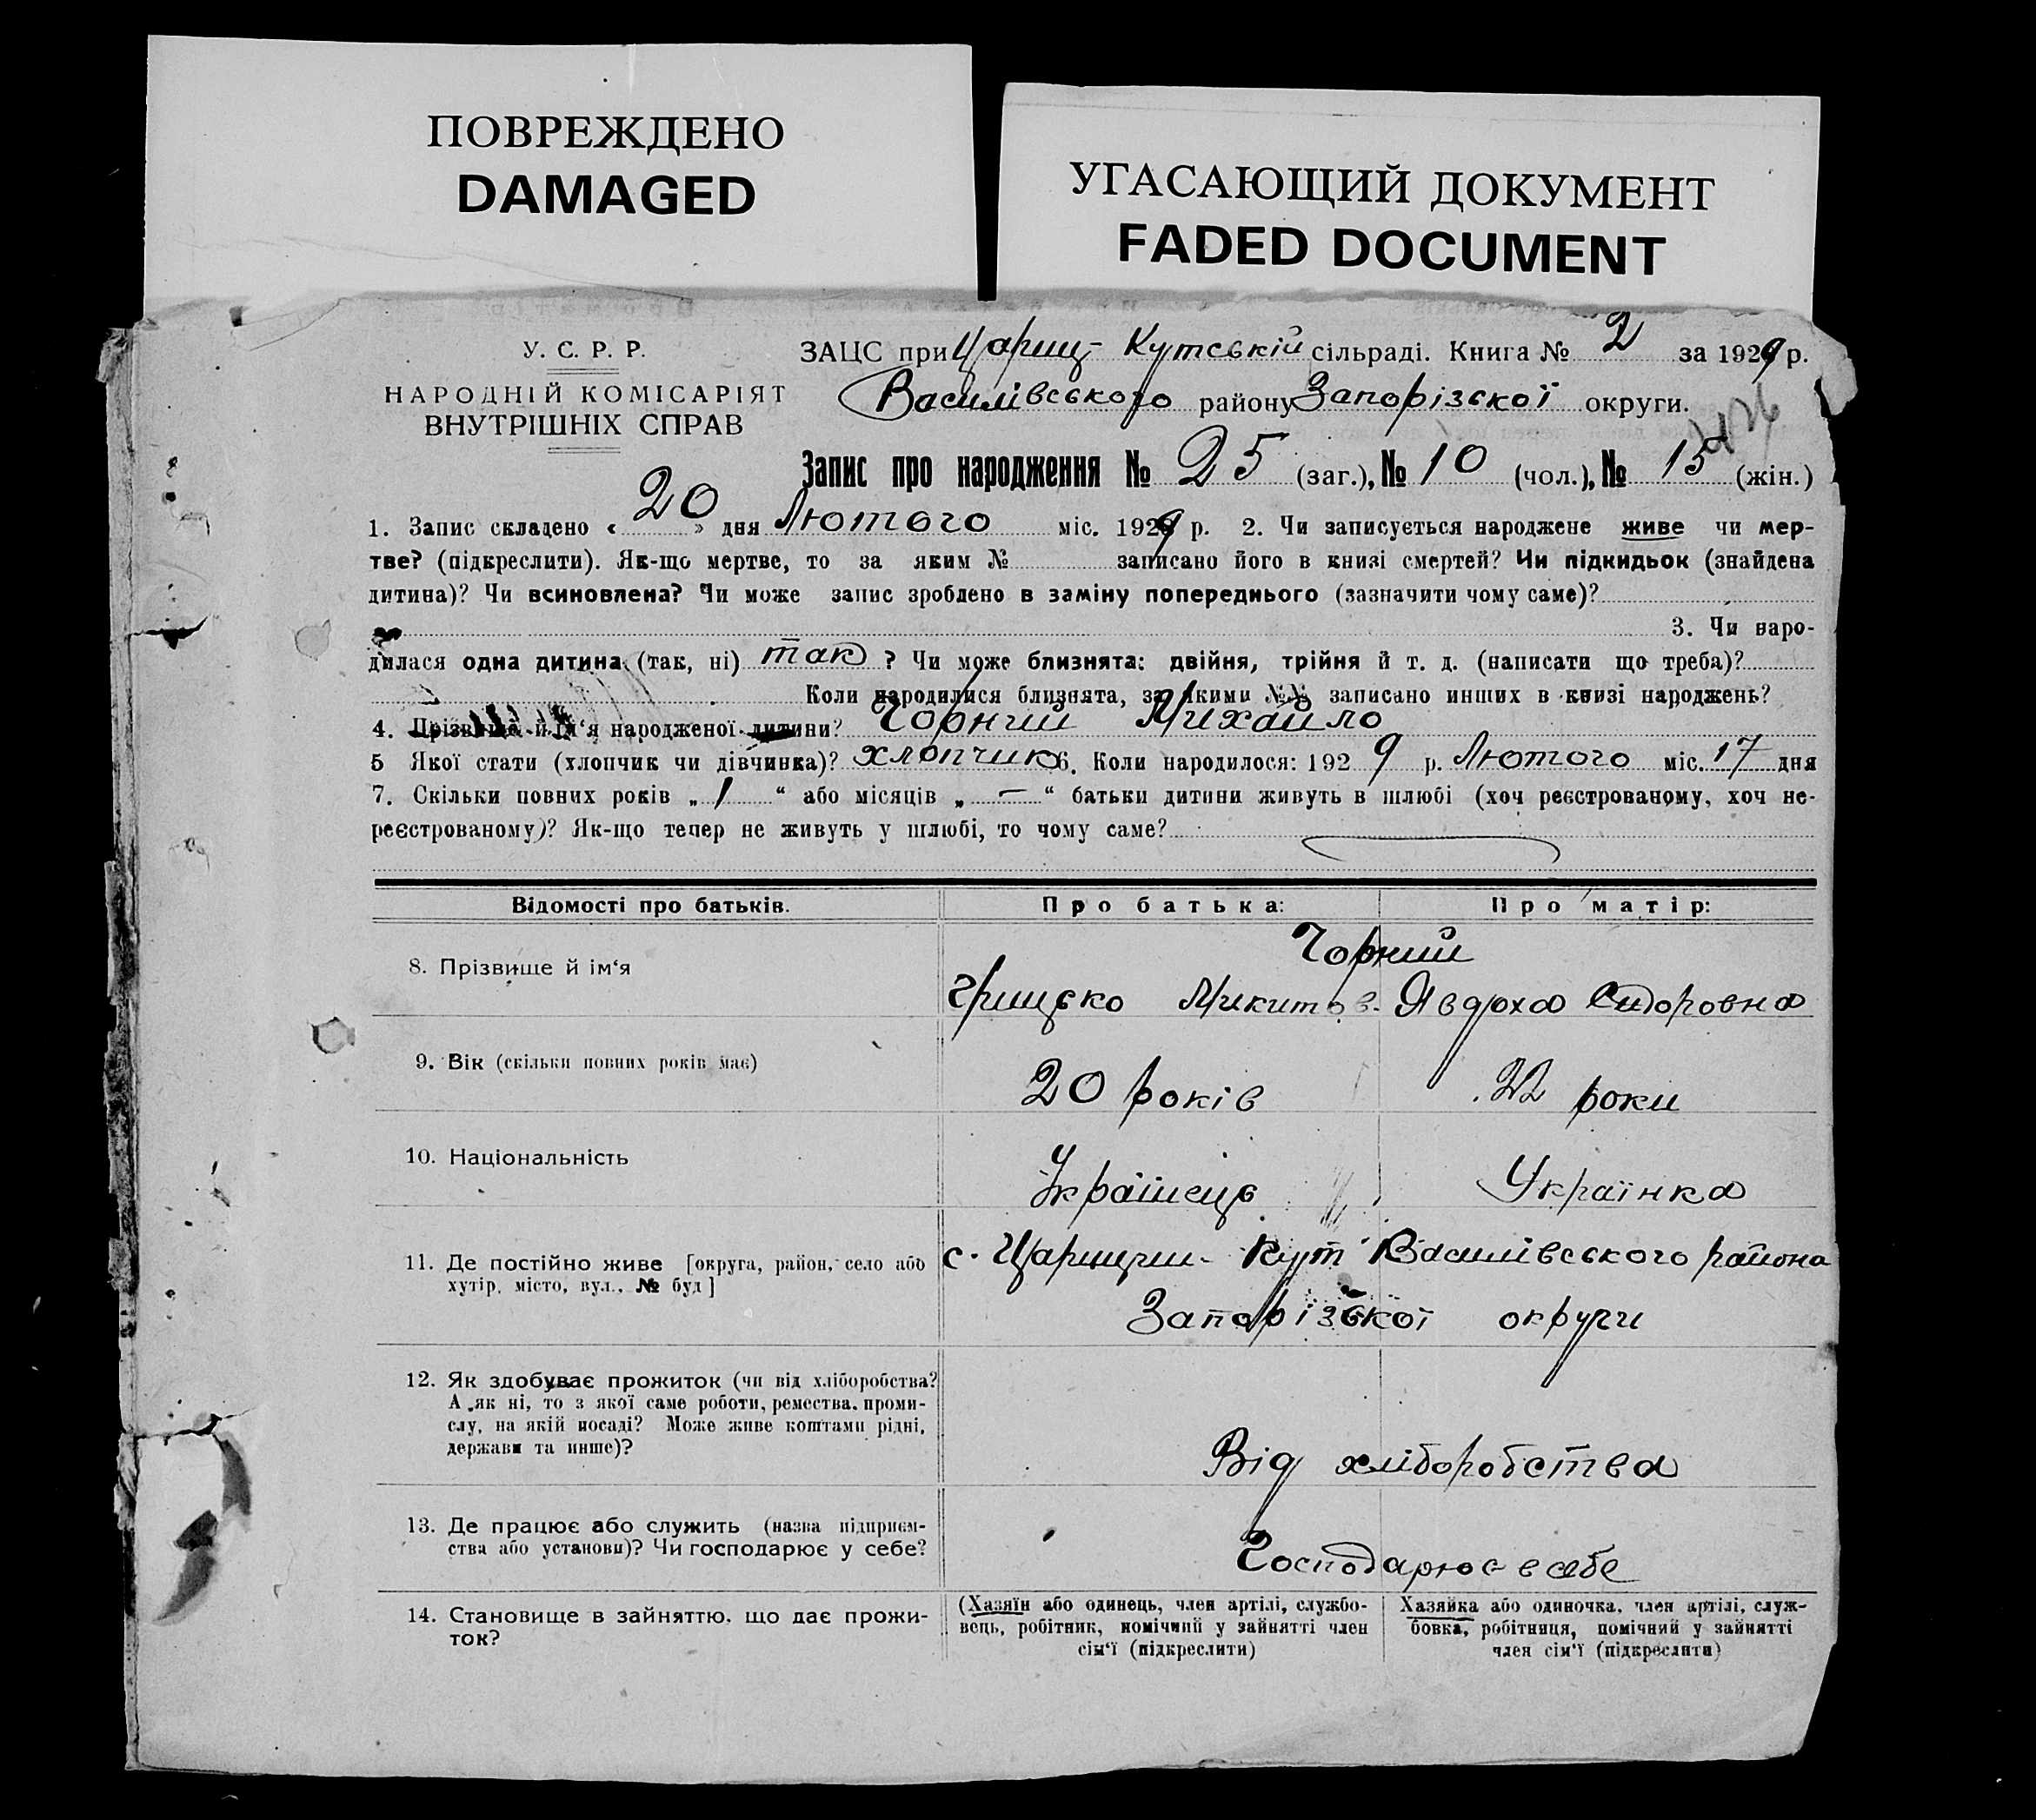 ПОВРЕЖДЕНО
DAMAGED
УГАСАЮЩИЙ ДОКУМЕНТ
FADED DOCUMENT
У. С. Р. Р.
НАРОДНІЙ КОМІСАРІЯТ
ВНУТРІШНІХ СПРАВ
ЗАЦС при Цариц-Кутській сільраді. Книга № 2 за 1929 р.
Василівського району Запорізької округи.
Запис про народження № 25 (заг.), № 10 (чол.), № 15 (жін.)
1. Запис складено « 20 » дня Лютого міс. 1929 р. 2. Чи записується народжене живе чи мер-
тве? (підкреслити). Як-що мертве, то за яким № записано його в книзі смертей? Чи підкидьок (знайдена
дитина)? Чи всиновлена? Чи може запис зроблено в заміну попереднього (зазначити чому саме)?
3. Чи наро-
дилася одна дитина (так, ні) так ? Чи може близнята: двійня, трійня й т. д. (написати що треба)?
Коли народилися близнята, за якими №№ записано инших в книзі народжень?
4. Прізвище й ім‘я народженої дитини? Чорний Михайло
5 Якої стати (хлопчик чи дівчинка)? хлопчик 6. Коли народилося: 1929 р. Лютого міс. 17 дня
7. Скільки повних років „ 1 “ або місяців „ — “ батьки дитини живуть в шлюбі (хоч реєстрованому, хоч не-
реєстрованому)? Як-що тепер не живуть у шлюбі, то чому саме?
Відомості про батьків. Про батька: Про матір:
Чорний
8. Прізвище й ім‘я Грицько Микитов. Явдоха Сидоровна
9. Вік (скільки повних років має) 20 років 22 роки
10. Національність Українець Українка
11. Де постійно живе [округа, район, село або с. Царицин-Кут Василівського района
хутір, місто, вул., № буд] Запорізької округи
12. Як здобуває прожиток (чи від хліборобства?
А як ні, то з якої саме роботи, ремества, проми-
слу, на якій посаді? Може живе коштами рідні,
держави та инше)? Від хліборобства
13. Де працює або служить (назва підприєм-
ства або установи)? Чи господарює у себе? Господарює в себе
14. Становище в зайняттю, що дає прожи-
ток?
(Хазяїн або одинець, член артілі, службо-
вець, робітник, помічний у зайнятті член
сім‘ї (підкреслити)
Хазяйка або одиночка, член артілі, служ-
бовка, робітниця, помічний у зайнятті
член сім‘ї (підкреслити)